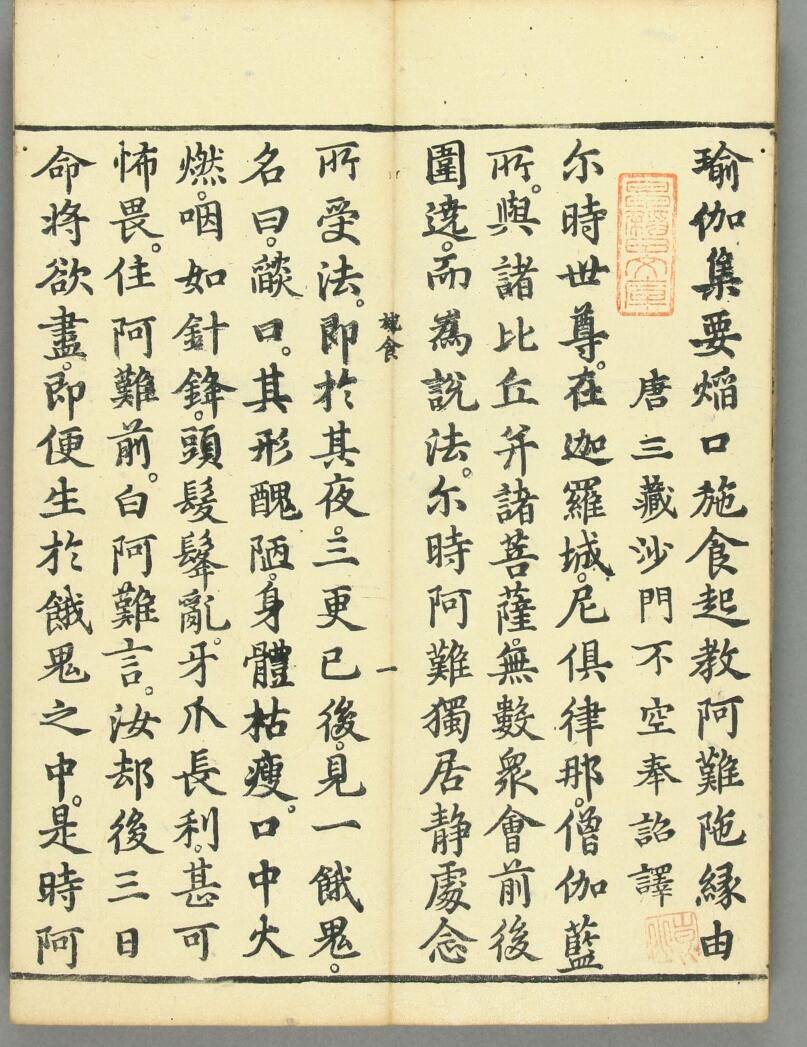 瑜伽集要熖口施食起教阿難陁緣由
唐三藏沙門不空奉詔譯
尒時世尊。在迦羅城。尼俱律那。僧伽藍
所。與諸比丘并諸菩薩。無數衆會前後
圍遶。而為說法。尒時阿難獨居静處念
施食 一
所受法。即於其夜。三更已後。見一餓鬼。
名曰。燄口。其形醜陋。身體枯瘦。口中火
燃。咽如針鋒。頭髮髼亂。牙爪長利。甚可
怖畏。住阿難前。白阿難言。汝却後三日
命将欲盡。即便生於餓鬼之中。是時阿